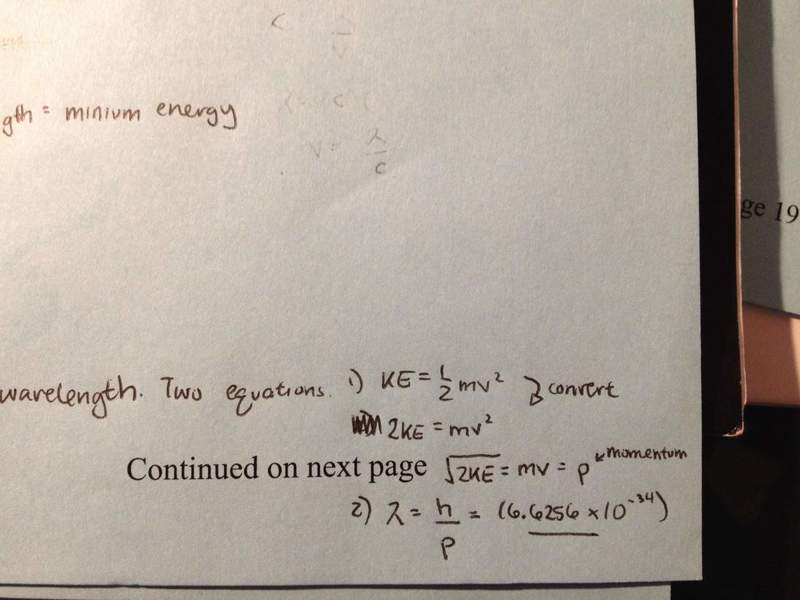 gth = minium energy
ν = λ/c
ge 19
wavelength. Two equations. 1) KE = 1/2 mv² } convert
2KE = mv²
Continued on next page √2KE = mv = p ← momentum
2) λ = h/p = (6.6256 × 10⁻³⁴)